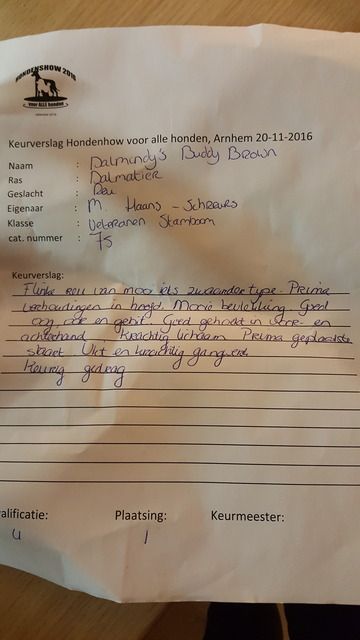 HONDENSHOW 2016
voor ALLE honden
Keurverslag Hondenhow voor alle honden, Arnhem 20-11-2016
Naam : Dalmundy's Buddy Brown
Ras : Dalmatier
Geslacht : Reu
Eigenaar : M. Haans - Schreurs
Klasse : Veteranen Stamboom
cat. nummer : 75
Keurverslag:
Flinke reu van mooi iets zwaarder type. Prima
verhoudingen in hoofd. Mooie bevlekking Goed
oog, oor en gebit. Goed gehoekt in voor- en
achterhand. Krachtig lichaam Prima geplaatste
staart Vlot en krachtig gangwerk
Keurig gedrag
alificatie: Plaatsing: Keurmeester:
U 1